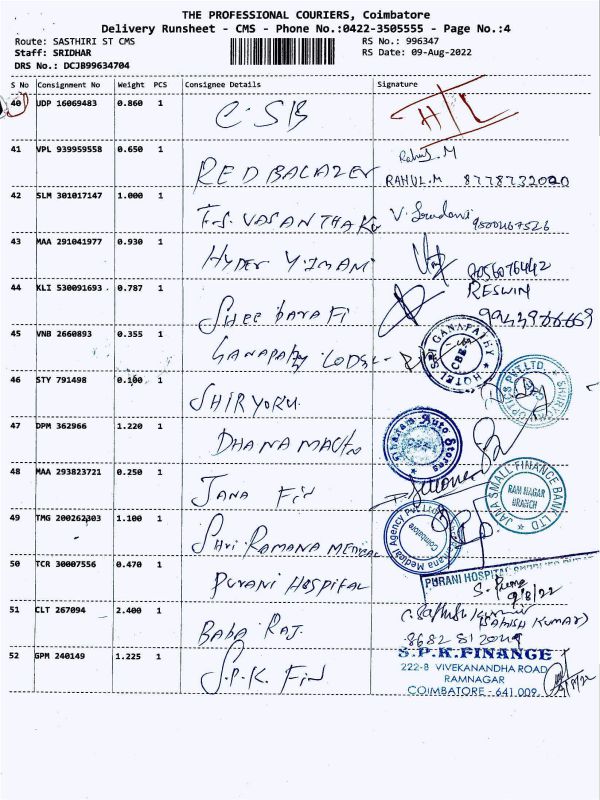 THE PROFESSIONAL COURIERS, Coimbatore
Delivery Runsheet - CMS - Phone No.:0422-3505555 - Page No.:4
Route: SASTHIRI ST CMS RS No.: 996347
Staff: SRIDHAR RS Date: 09-Aug-2022
DRS No.: DCJB99634704
S No Consignment No Weight PCS Consignee Details Signature
40 UDP 16069483 0.860 1 C.S.B H/L
41 VPL 939959558 0.650 1 RED BALAZER Rahul.M
RAHUL.M 8778732020
42 SLM 301017147 1.000 1 F.S. VASANTHAKU V.
43 MAA 291041977 0.930 1 HYDER Y.IMAM 9056076442
44 KLI 530091693 0.787 1 RESWIN
45 VNB 2660893 0.355 1 GANAPATHY LODGE HOTEL SRI GANAPATHY CBE
46 STY 791498 0.100 1 SHIRYORU
47 DPM 362966 1.220 1 DHANAM AUTO Dhanam Auto Stores
48 MAA 293823721 0.250 1 JANA FIN JANA SMALL FINANCE BANK LTD RAM NAGAR BRANCH
49 TMG 200262303 1.100 1 SHRI RAMANA MEDICAL Ramana Medical Agency Pvt Ltd Coimbatore
50 TCR 30007556 0.470 1 PURANI HOSPITAL PURANI HOSPITAL
S. Prema
9/8/22
51 CLT 267094 2.400 1 BABA RAJ. C. Sathish Kumar
(SATHISH KUMAR)
52 GPM 240149 1.225 1 S.P.K. FIN S.P.K.FINANCE
222-8 VIVEKANANDHA ROAD
RAMNAGAR
COIMBATORE - 641 009.